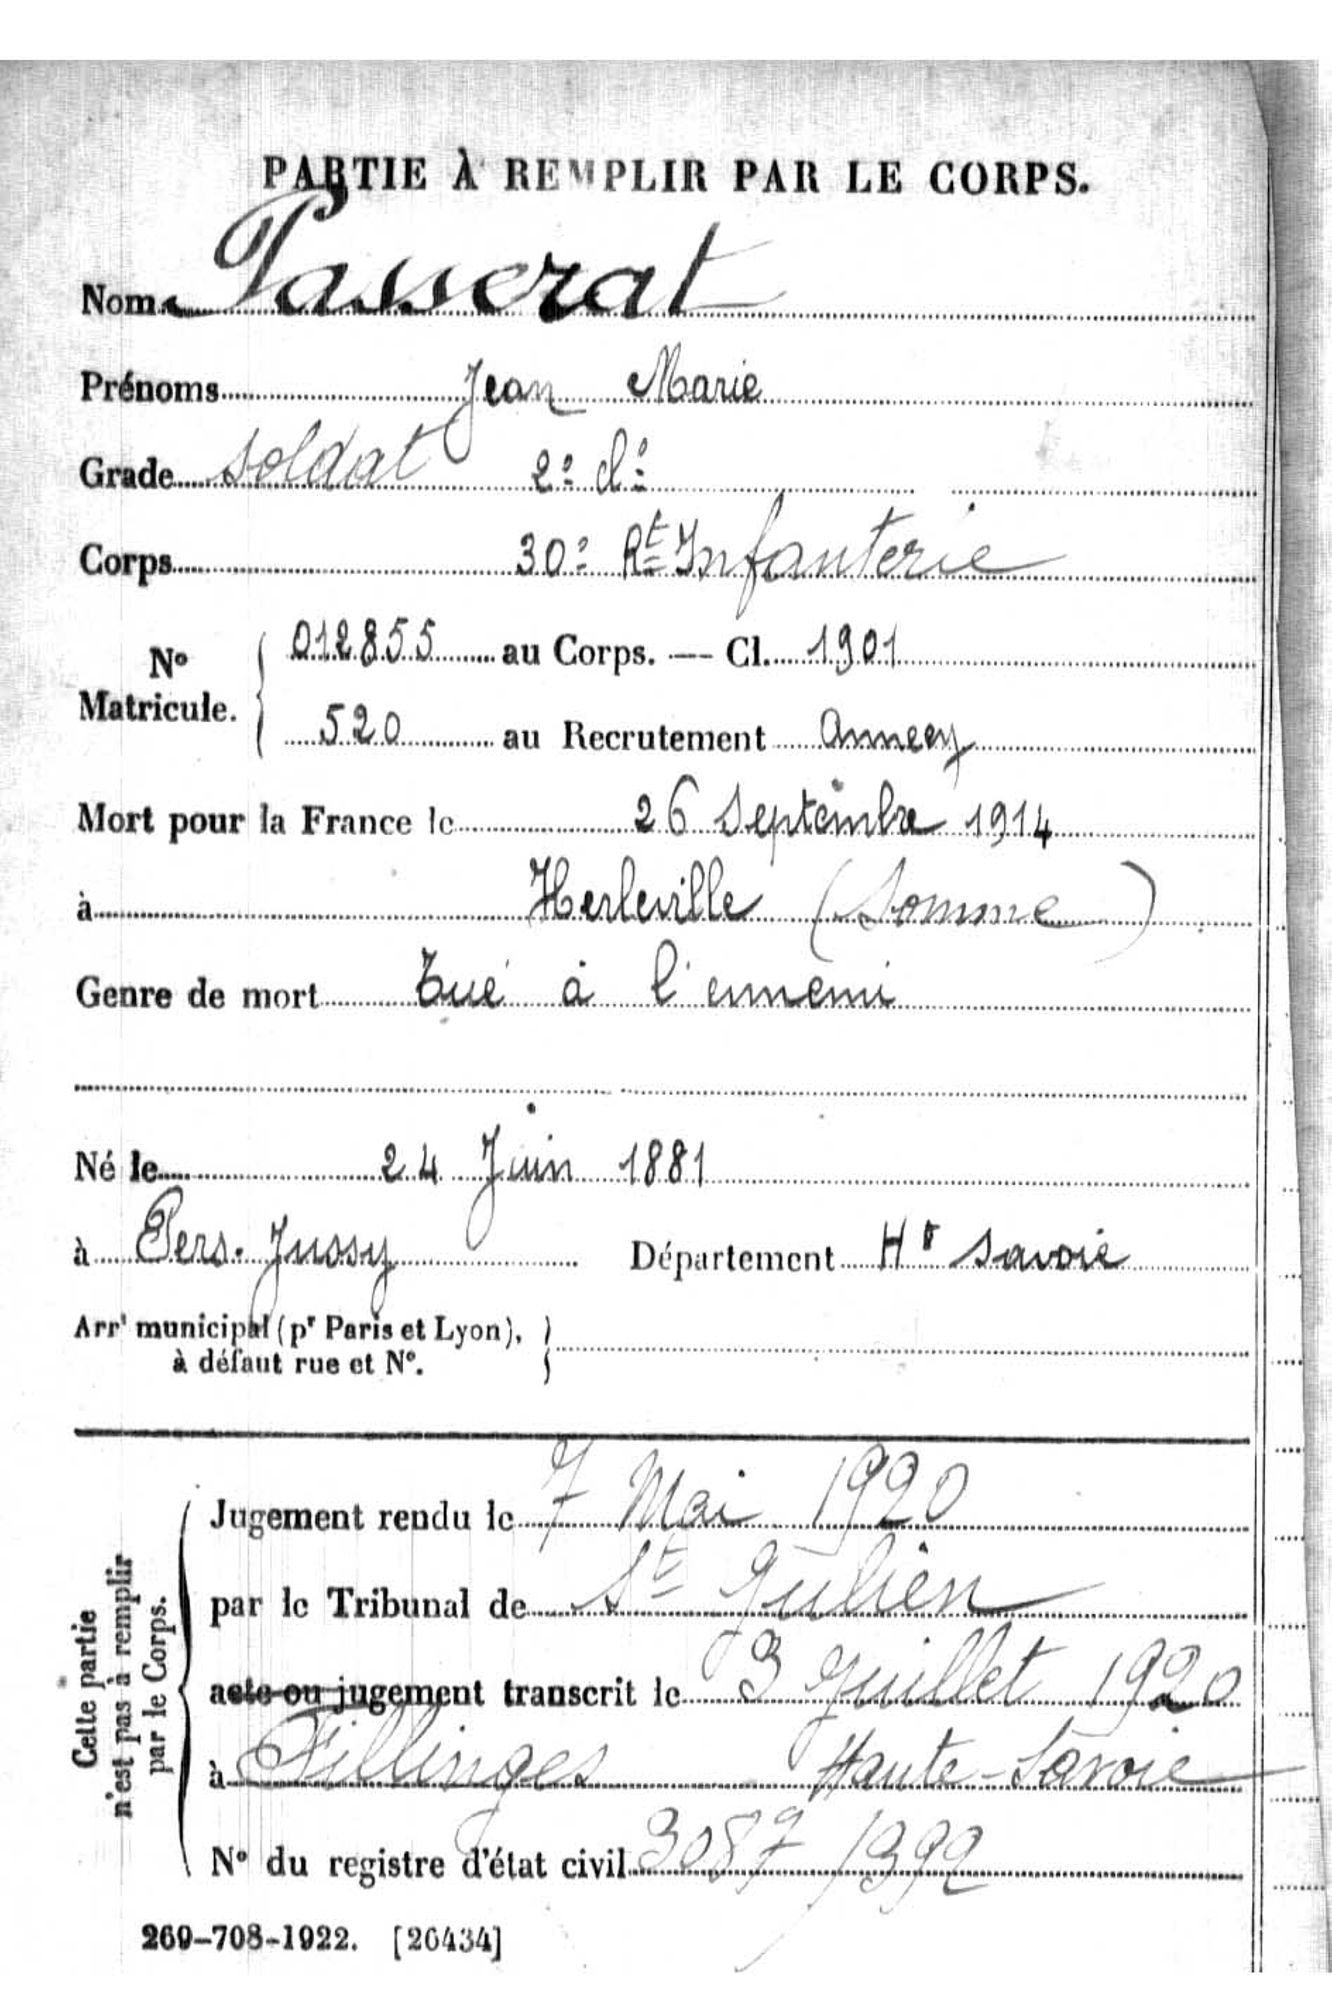 PARTIE À REMPLIR PAR LE CORPS.
Nom Passerat
Prénoms Jean Marie
Grade soldat 2e cl.
Corps 30e Rt Infanterie
No Matricule. { 012855 au Corps. — Cl. 1901
520 au Recrutement Annecy
Mort pour la France le 26 Septembre 1914
à Herleville (Somme)
Genre de mort Tué à l'ennemi
Né le 24 Juin 1881
à Pers. Jussy Département Hte Savoie
Arrt municipal (pr Paris et Lyon), }
à défaut rue et No.
Cette partie
n'est pas à remplir
par le Corps.
Jugement rendu le 7 Mai 1920
par le Tribunal de St Julien
acte ou jugement transcrit le 3 Juillet 1920
à Fillinges Haute-Savoie
No du registre d'état civil 3087/392
269-708-1922. [26434]